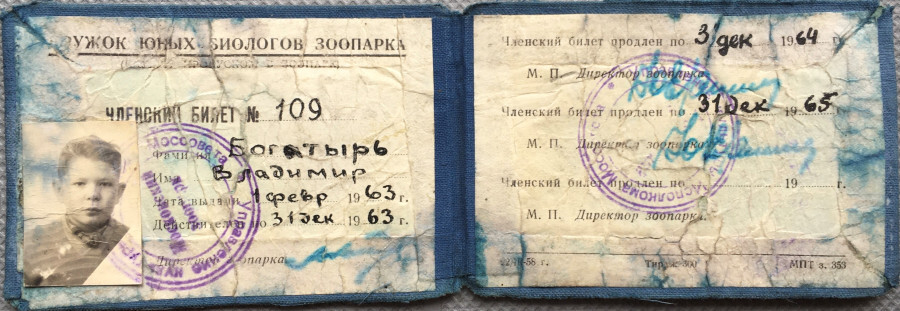 КРУЖОК ЮНЫХ БИОЛОГОВ ЗООПАРКА
ЧЛЕНСКИЙ БИЛЕТ № 109
Фамилия Богатырь
Владимир
Дата выдачи 1 февр 1963 г.
Действителен по 31 дек 1963 г.
Директор зоопарка
Моссовета Управление
Московский
Членский билет продлен по 31 дек 1964 г.
М. П. Директор зоопарка
Членский билет продлен по 31 дек 1965 г.
М. П. Директор зоопарка
Членский билет продлен по 19 г.
М. П. Директор зоопарка.
Тир. 300
МПТ з. 353